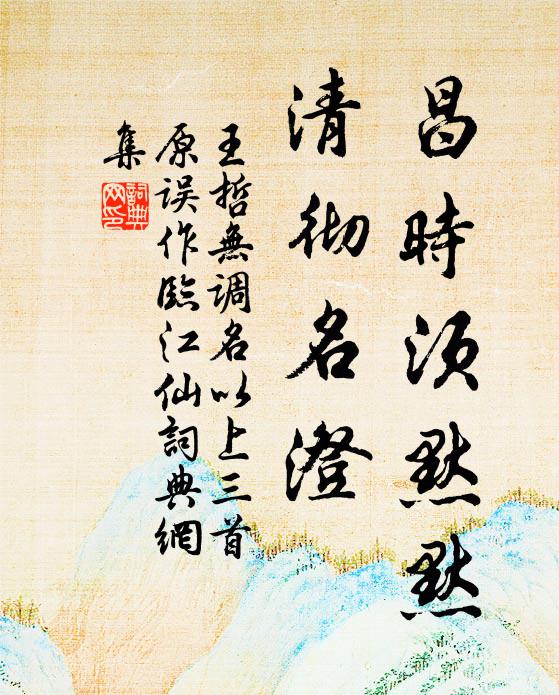 昌時須默默
清彻名澄
王哲無調名以上三首
原误作臨江仙詞典網
集
詞典网印